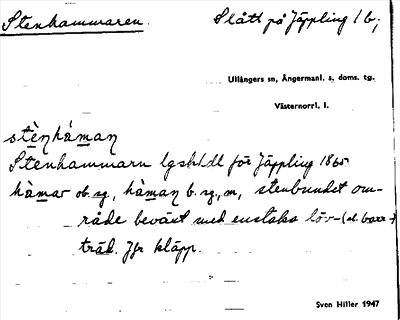 Stenhammaren. Slått på Jäppling 1 b;
Ullångers sn, Ångermanl. s. doms. tg.
Västernorrl. l.
stènhàman
Stenhammarn lgskhdl för Jäppling 1865
hàmar ob. sg., hàman b. sg., m, stenbundet om-
råde beväxt med enstaka löv- (el. barr-)
träd. Jfr kläpp.
Sven Hiller 1947